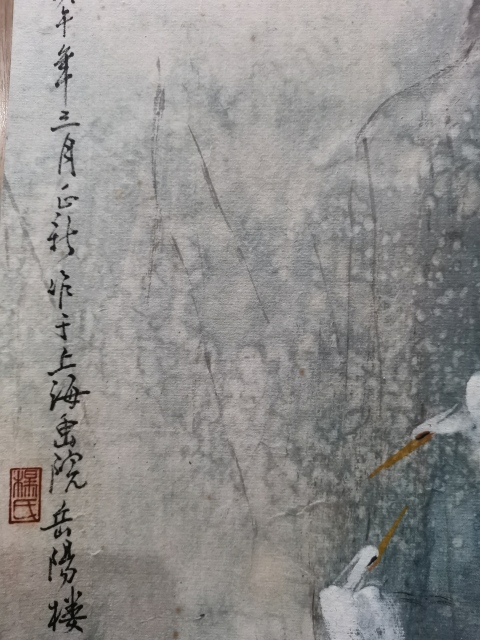 午年三月正新作于上海画院岳陽楼
楊氏